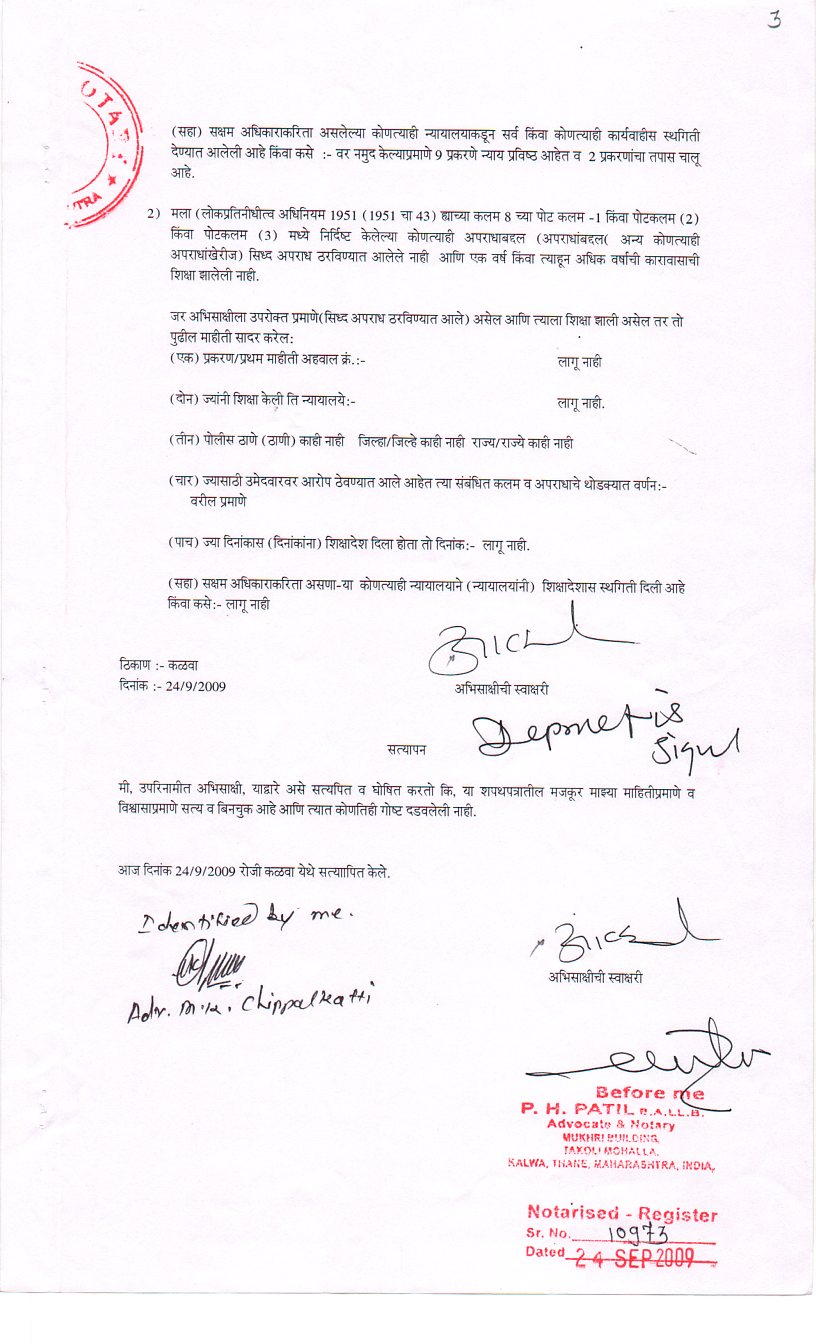 3
OTARY
TRA
(सहा) सक्षम अधिकाराकरिता असलेल्या कोणत्याही न्यायालयाकडून सर्व किंवा कोणत्याही कार्यवाहीस स्थगिती
देण्यात आलेली आहे किंवा कसे :- वर नमुद केल्याप्रमाणे 9 प्रकरणे न्याय प्रविष्ठ आहेत व 2 प्रकरणांचा तपास चालू
आहे.
2) मला (लोकप्रतिनीधीत्व अधिनियम 1951 (1951 चा 43) ह्याच्या कलम 8 च्या पोट कलम -1 किंवा पोटकलम (2)
किंवा पोटकलम (3) मध्ये निर्दिष्ट केलेल्या कोणत्याही अपराधाबद्दल (अपराधांबद्दल( अन्य कोणत्याही
अपराधांखेरीज) सिध्द अपराध ठरविण्यात आलेले नाही आणि एक वर्ष किंवा त्याहून अधिक वर्षाची कारावासाची
शिक्षा झालेली नाही.
जर अभिसाक्षीला उपरोक्त प्रमाणे(सिध्द अपराध ठरविण्यात आले) असेल आणि त्याला शिक्षा झाली असेल तर तो
पुढील माहीती सादर करेल:
(एक) प्रकरण/प्रथम माहीती अहवाल क्रं.:- लागू नाही
(दोन) ज्यांनी शिक्षा केली ति न्यायालये:- लागू नाही.
(तीन) पोलीस ठाणे (ठाणी) काही नाही जिल्हा/जिल्हे काही नाही राज्य/राज्ये काही नाही
(चार) ज्यासाठी उमेदवारवर आरोप ठेवण्यात आले आहेत त्या संबंधित कलम व अपराधाचे थोडक्यात वर्णन:-
वरील प्रमाणे
(पाच) ज्या दिनांकास (दिनांकांना) शिक्षादेश दिला होता तो दिनांक:- लागू नाही.
(सहा) सक्षम अधिकाराकरिता असणा-या कोणत्याही न्यायालयाने (न्यायालयांनी) शिक्षादेशास स्थगिती दिली आहे
किंवा कसे:- लागू नाही
ठिकाण :- कळवा
दिनांक :- 24/9/2009
अभिसाक्षीची स्वाक्षरी
सत्यापन
मी, उपरिनामीत अभिसाक्षी, याद्वारे असे सत्यपित व घोषित करतो कि, या शपथपत्रातील मजकूर माझ्या माहितीप्रमाणे व
विश्वासाप्रमाणे सत्य व बिनचुक आहे आणि त्यात कोणतिही गोष्ट दडवलेली नाही.
आज दिनांक 24/9/2009 रोजी कळवा येथे सत्याापित केले.
Identified by me.
Adv. M.K. Chippalkatti
अभिसाक्षीची स्वाक्षरी
Before me
P. H. PATIL B.A.LL.B.
Advocate & Notary
MUKHRI BUILDING,
TAKOLI MOHALLA,
KALWA, THANE, MAHARASHTRA, INDIA,
Notarised - Register
Sr. No. 10973
Dated 24 SEP 2009